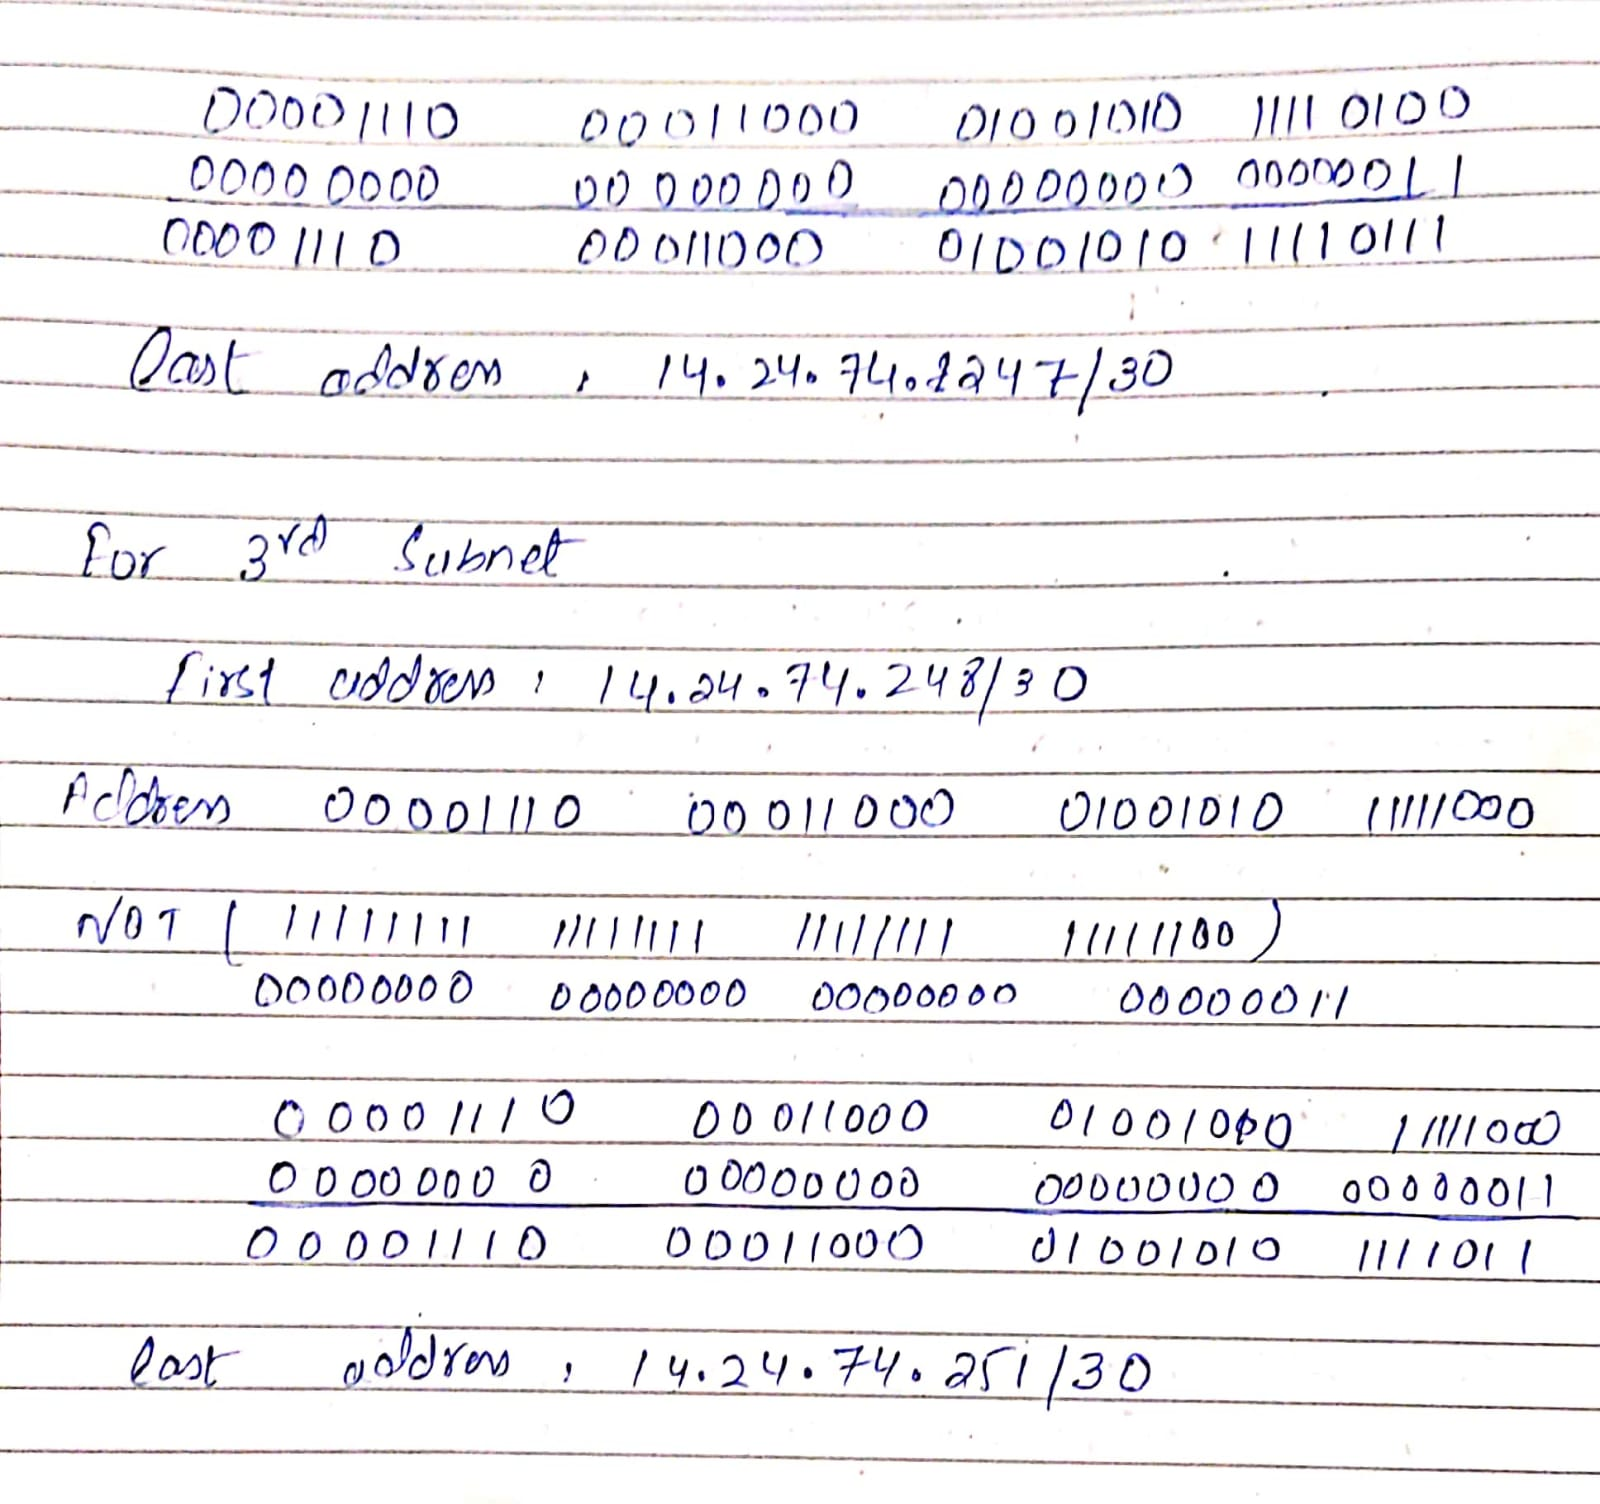 00001110 00011000 01001010 11110100
00000000 00000000 00000000 00000011
00001110 00011000 01001010 11110111
last address, 14.24.74.247/30
For 3rd Subnet
first address, 14.24.74.248/30
Address 00001110 00011000 01001010 11111000
NOT ( 11111111 11111111 11111111 11111100 )
00000000 00000000 00000000 00000011
00001110 00011000 01001000 11111000
00000000 00000000 00000000 00000011
00001110 00011000 01001010 1111011
last address, 14.24.74.251/30